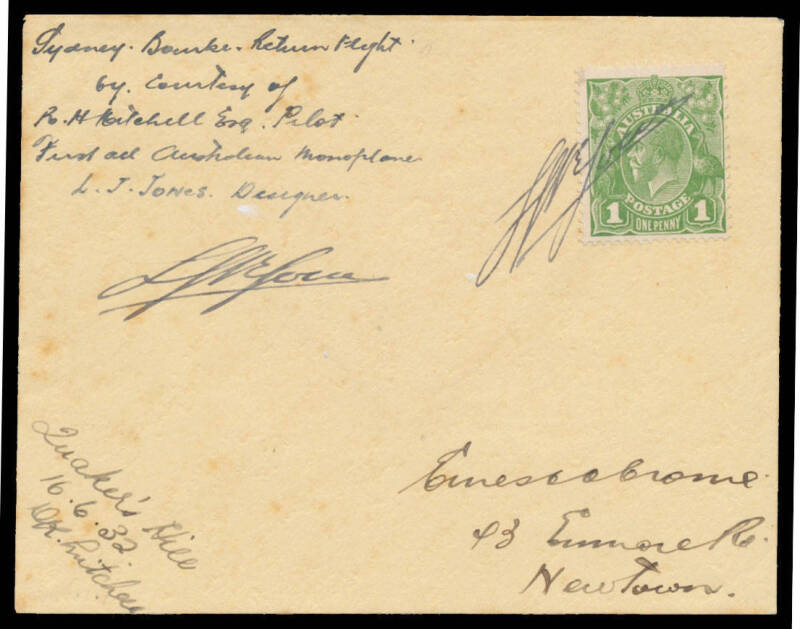 Sydney - Bourke - Return Flight
by Courtesy of
R. H. Mitchell Esq. Pilot
First all Australian Monoplane
L. J. Jones. Designer.
AUSTRALIA
POSTAGE
1 ONE PENNY 1
Ernest Crome
43 Enmore Rd.
Newtown.
Quaker's Hill
16.6.32